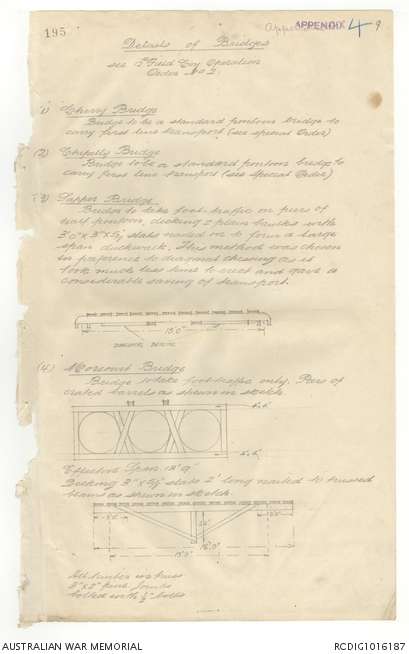 195
APPENDIX 4 9
Details of Bridges
see 15 Field Coy Operation
Order No 2.
1) Cherry Bridge
Bridge to be a standard pontoon bridge to
carry first line transport (see special Order)
(2) Chipilly Bridge
Bridge to be a standard pontoon bridge to
carry first line transport (see Special Order)
(3) Sapper Bridge
Bridge to take foot-traffic on piers of
half pontoon, decking 2 plain with
3'0" x 3" x 5/8 slats nailed on to form a large
span duckwalk. This method was chosen
in preference to diagonal as it
took much less time to erect and gave a
considerable saving of transport.
15' 0"
(4) Morcourt Bridge
Bridge to take foot-traffic only. Piers of
crated barrels as shewn in sketch.
4" x 2"
Effective Span 12' 9"
Decking 3" x 5/8 slats 2' long nailed to trussed
beams as shewn in sketch.
15' 0"
16' 0"
All timber in truss
3" x 2" pine. Joints
bolted with ½" bolts
AUSTRALIAN WAR MEMORIAL
RCDIG1016187